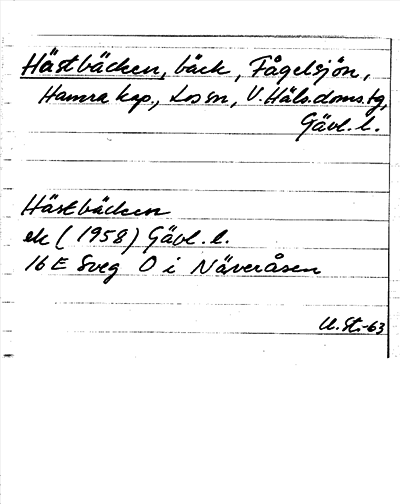 Hästbäcken, bäck, Fågelsjön,
Hamra kap., Los sn, V. Häls. doms. tg,
Gävl. l.
Hästbäcken
ek (1958) Gävl. l.
16 E Sveg O i Näveråsen
U. St. -63